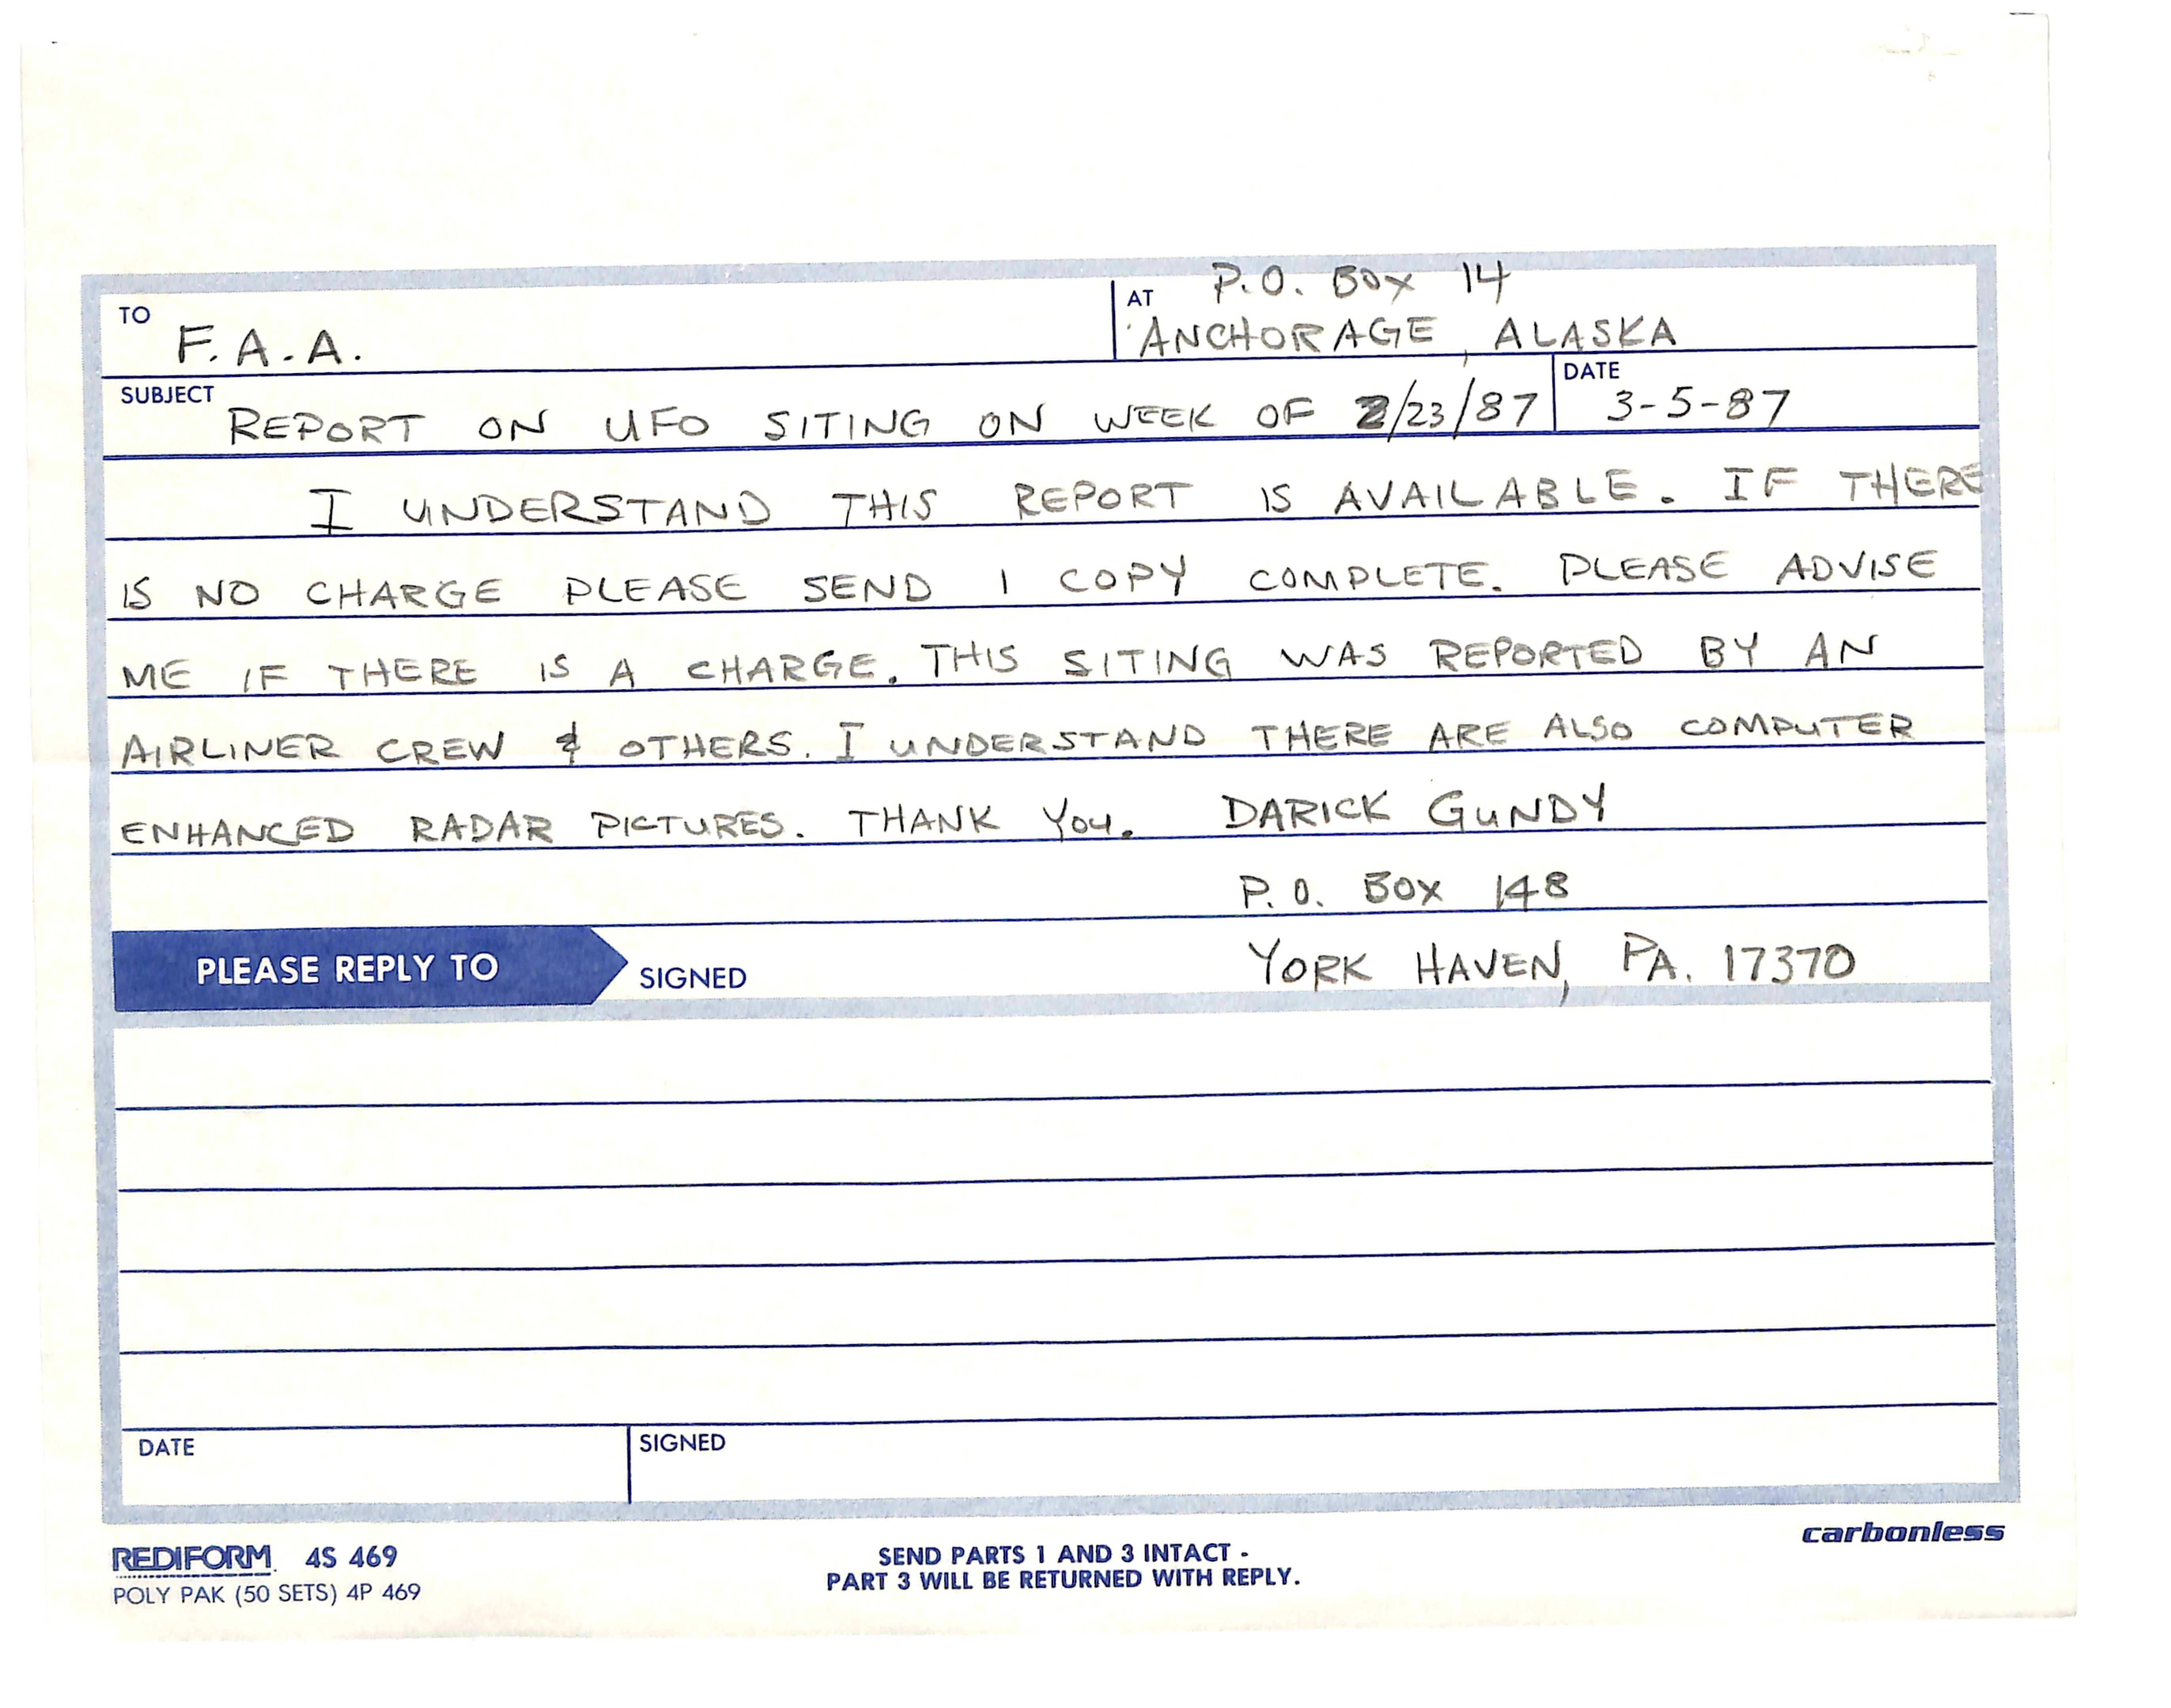 TO F.A.A.
AT P.O. BOX 14
ANCHORAGE, ALASKA
SUBJECT REPORT ON UFO SITING ON WEEK OF 2/23/87
DATE 3-5-87
I UNDERSTAND THIS REPORT IS AVAILABLE. IF THERE
IS NO CHARGE PLEASE SEND 1 COPY COMPLETE. PLEASE ADVISE
ME IF THERE IS A CHARGE. THIS SITING WAS REPORTED BY AN
AIRLINER CREW & OTHERS. I UNDERSTAND THERE ARE ALSO COMPUTER
ENHANCED RADAR PICTURES. THANK YOU. DARICK GUNDY
P.O. BOX 148
PLEASE REPLY TO SIGNED YORK HAVEN, PA. 17370
DATE SIGNED
REDIFORM 4S 469
POLY PAK (50 SETS) 4P 469
SEND PARTS 1 AND 3 INTACT -
PART 3 WILL BE RETURNED WITH REPLY.
carbonless